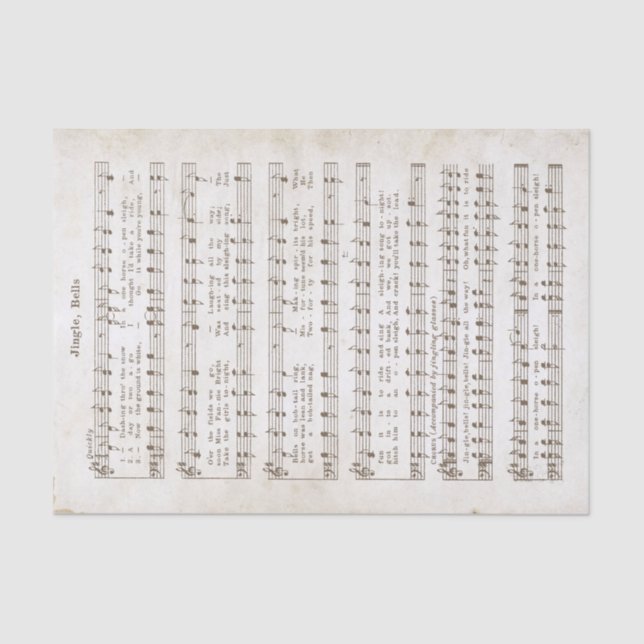 Jingle, Bells
Quickly
1. — Dash-ing thro' the snow In a one horse o-pen sleigh, —
2. A day or two a-go I thought I'd take a ride, And
3. — Now the ground is white, — Go it while you're young, —
O'er the fields we go, Laugh-ing all the way; —
soon Miss Fan-nie Bright Was seat-ed by my side; The
Take the girls to-night, And sing this sleigh-ing song; Just
Bells on bob-tail ring, Mak-ing spir-its bright, What
horse was lean and lank, Mis-for-tune seem'd his lot, He
get a bob-tailed nag, Two-for-ty for his speed, Then
fun it is to ride and sing A sleigh-ing song to-night!
got in-to a drift-ed bank, And we, we got up-sot.
hitch him to an o-pen sleigh, And crack! you'll take the lead.
CHORUS (Accompanied by jingling glasses)
Jin-gle, bells! jin-gle, bells! Jin-gle all the way! Oh, what fun it is to ride
In a one-horse o-pen sleigh! In a one-horse o-pen sleigh!